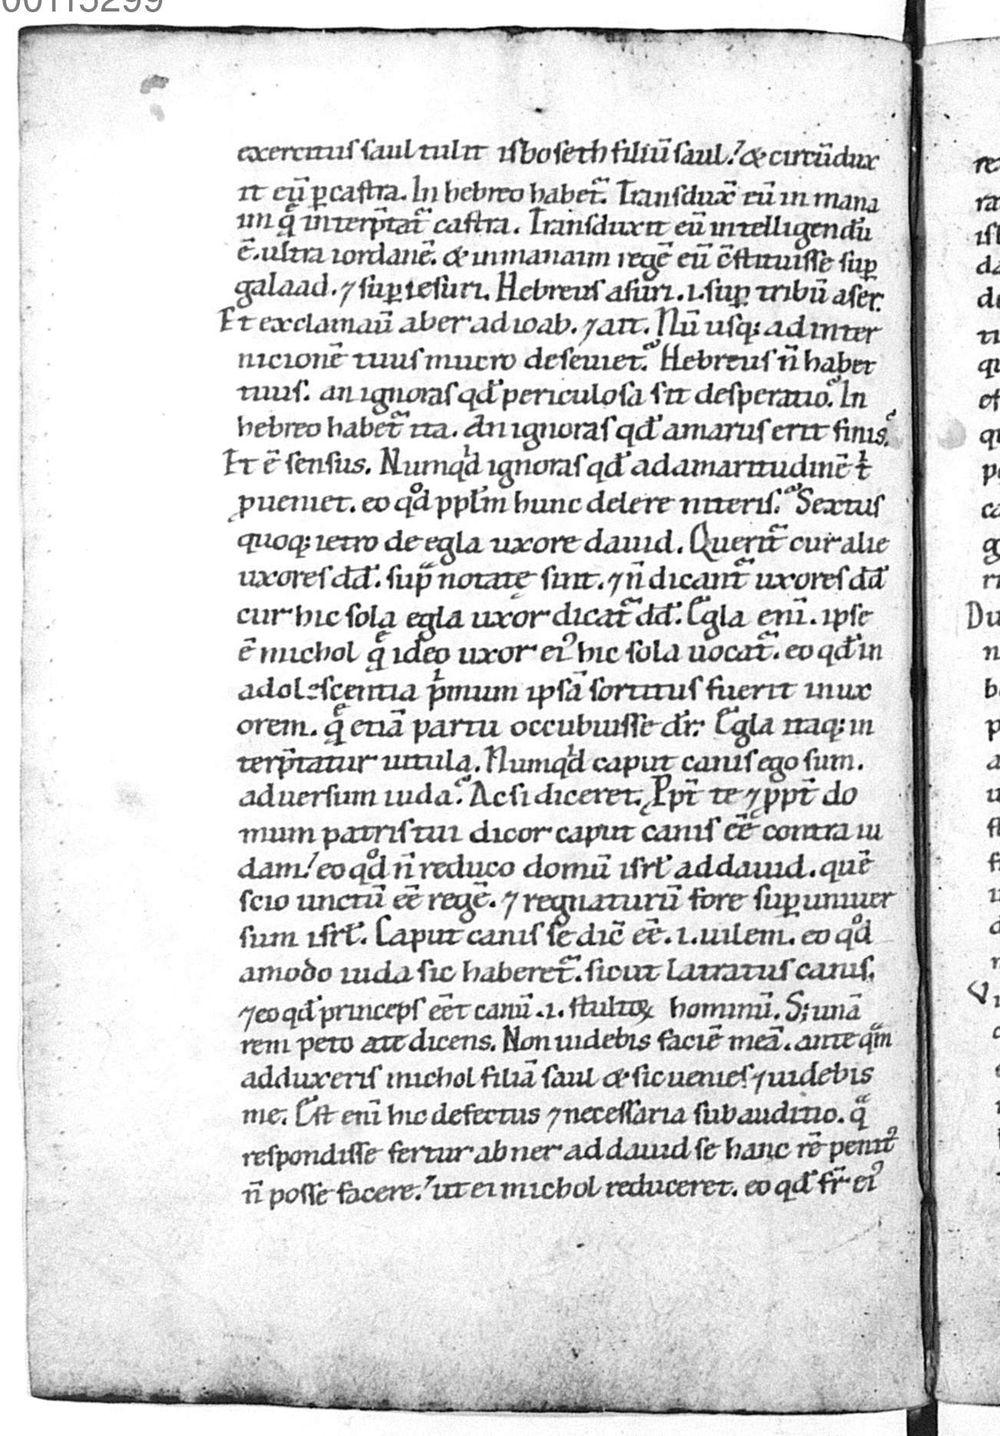 00115299
exercitus saul tulit isboseth filiū saul! & circūdux
it eū ꝑ castra. In hebreo habet᷒. Transdux̄ eū in mana
im q̄ interp̄tat᷒ castra. Transduxit eū intelligendū
ē. ultra iordanē. & in manaim regē eū c̄stituisse suꝑ
galaad. ⁊ suꝑ iesuri. Hebreus asuri. .i. suꝑ tribū aser.
Et exclamaū abner ad ioab. ⁊ ait. Nū usq; ad inter
nicionē tuus mucro deseuiet. Hebreus n̄ habet
tuus. an ignoras qd̄ periculosa sit desperatio. In
hebreo habet᷒ ita. An ignoras qd̄ amarus erit finis.
Et ē sensus. Numqͥd ignoras qd̄ ad amaritudinē t̄
ꝓueniet. eo qͦd ppl̄m hunc delere niteris. Sextus
quoq; ietro de egla uxore dauid. Querit᷒ cur alie
uxores dd̄. sup̄ notatę sint. ⁊ n̄ dicant᷒ uxores dd̄
cur hic sola egla uxor dicat᷒ dd̄. Egla eni. ipse
ē michol q̄ ideo uxor ei᷒ hic sola uocat᷒. eo qd̄ in
adolescentia pͥmum ipsā sortitus fuerit in ux
orem. q̄ etiā partu occubuisse dr̄. Egla itaq; in
terp̄tatur uitula. Numqͥd caput canis ego sum.
aduersum iuda. Ac si diceret. Ꝓpt̄ te ⁊ ꝓpt̄ do
mum patris tui dicor caput canis eē contra iu
dam! eo qͦd n̄ reduco domū isrl̄ ad dauid. quē
scio unctū eē regē. ⁊ regnaturū fore suꝑ uniuer
sum isrl̄. Caput canis se dic̄ eē. .i. uilem. eo qͦd
amodo iuda sic haberet᷒. sicut latratus canis.
⁊ eo qd̄ princeps eēt canū .i. stultoꝝ hominū. S; unā
rem peto a te dicens. Non uidebis faciē meā. ante qͣm
adduxeris michol filiā saul & sic uenies ⁊ uidebis
me. Est eni hic defectus ⁊ necessaria subauditio. qͣ
respondisse fertur abner ad dauid se hanc rē penit᷒
n̄ posse facere! ut ei michol reduceret. eo qd̄ fr̄ ei᷒